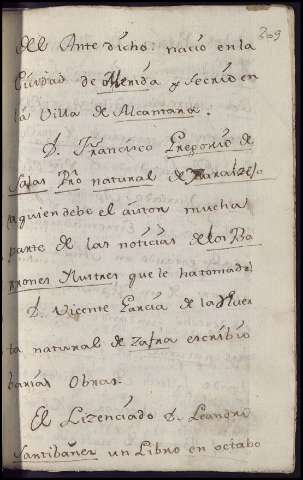 209
del Antedicho: nacio en la
Ciudad de Merida y se crio en
la Villa de Alcantara.
D. Francisco Gregorio de
Salas Pro natural de Jaraizejo
(a quien debe el autor mucha
parte de las noticias de los Ba
rones Ilustres que le ha tomado)
D. Vicente Garcia de la Huer
ta natural de Zafra escribio
barias Obras.
El Lizenciado D. Leandro
Santibañez un Libro en octabo